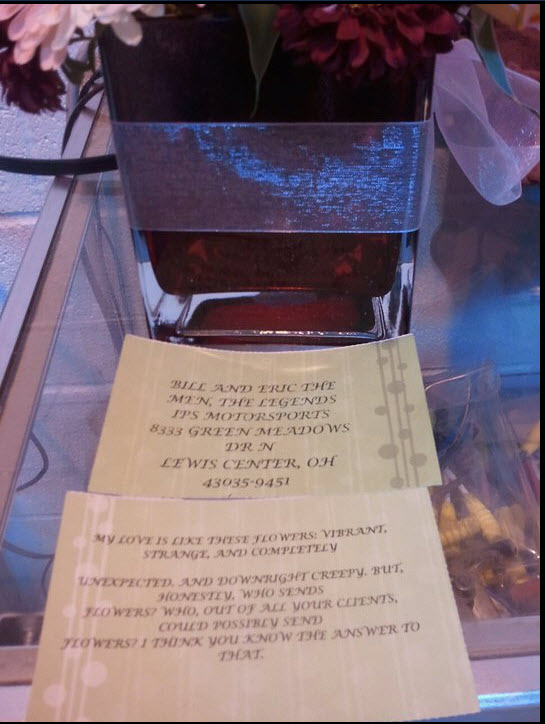 BILL AND ERIC THE
MEN, THE LEGENDS
IPS MOTORSPORTS
8333 GREEN MEADOWS
DR N
LEWIS CENTER, OH
43035-9451
MY LOVE IS LIKE THESE FLOWERS: VIBRANT,
STRANGE, AND COMPLETELY
UNEXPECTED. AND DOWNRIGHT CREEPY. BUT,
HONESTLY, WHO SENDS
FLOWERS? WHO, OUT OF ALL YOUR CLIENTS,
COULD POSSIBLY SEND
FLOWERS? I THINK YOU KNOW THE ANSWER TO
THAT.